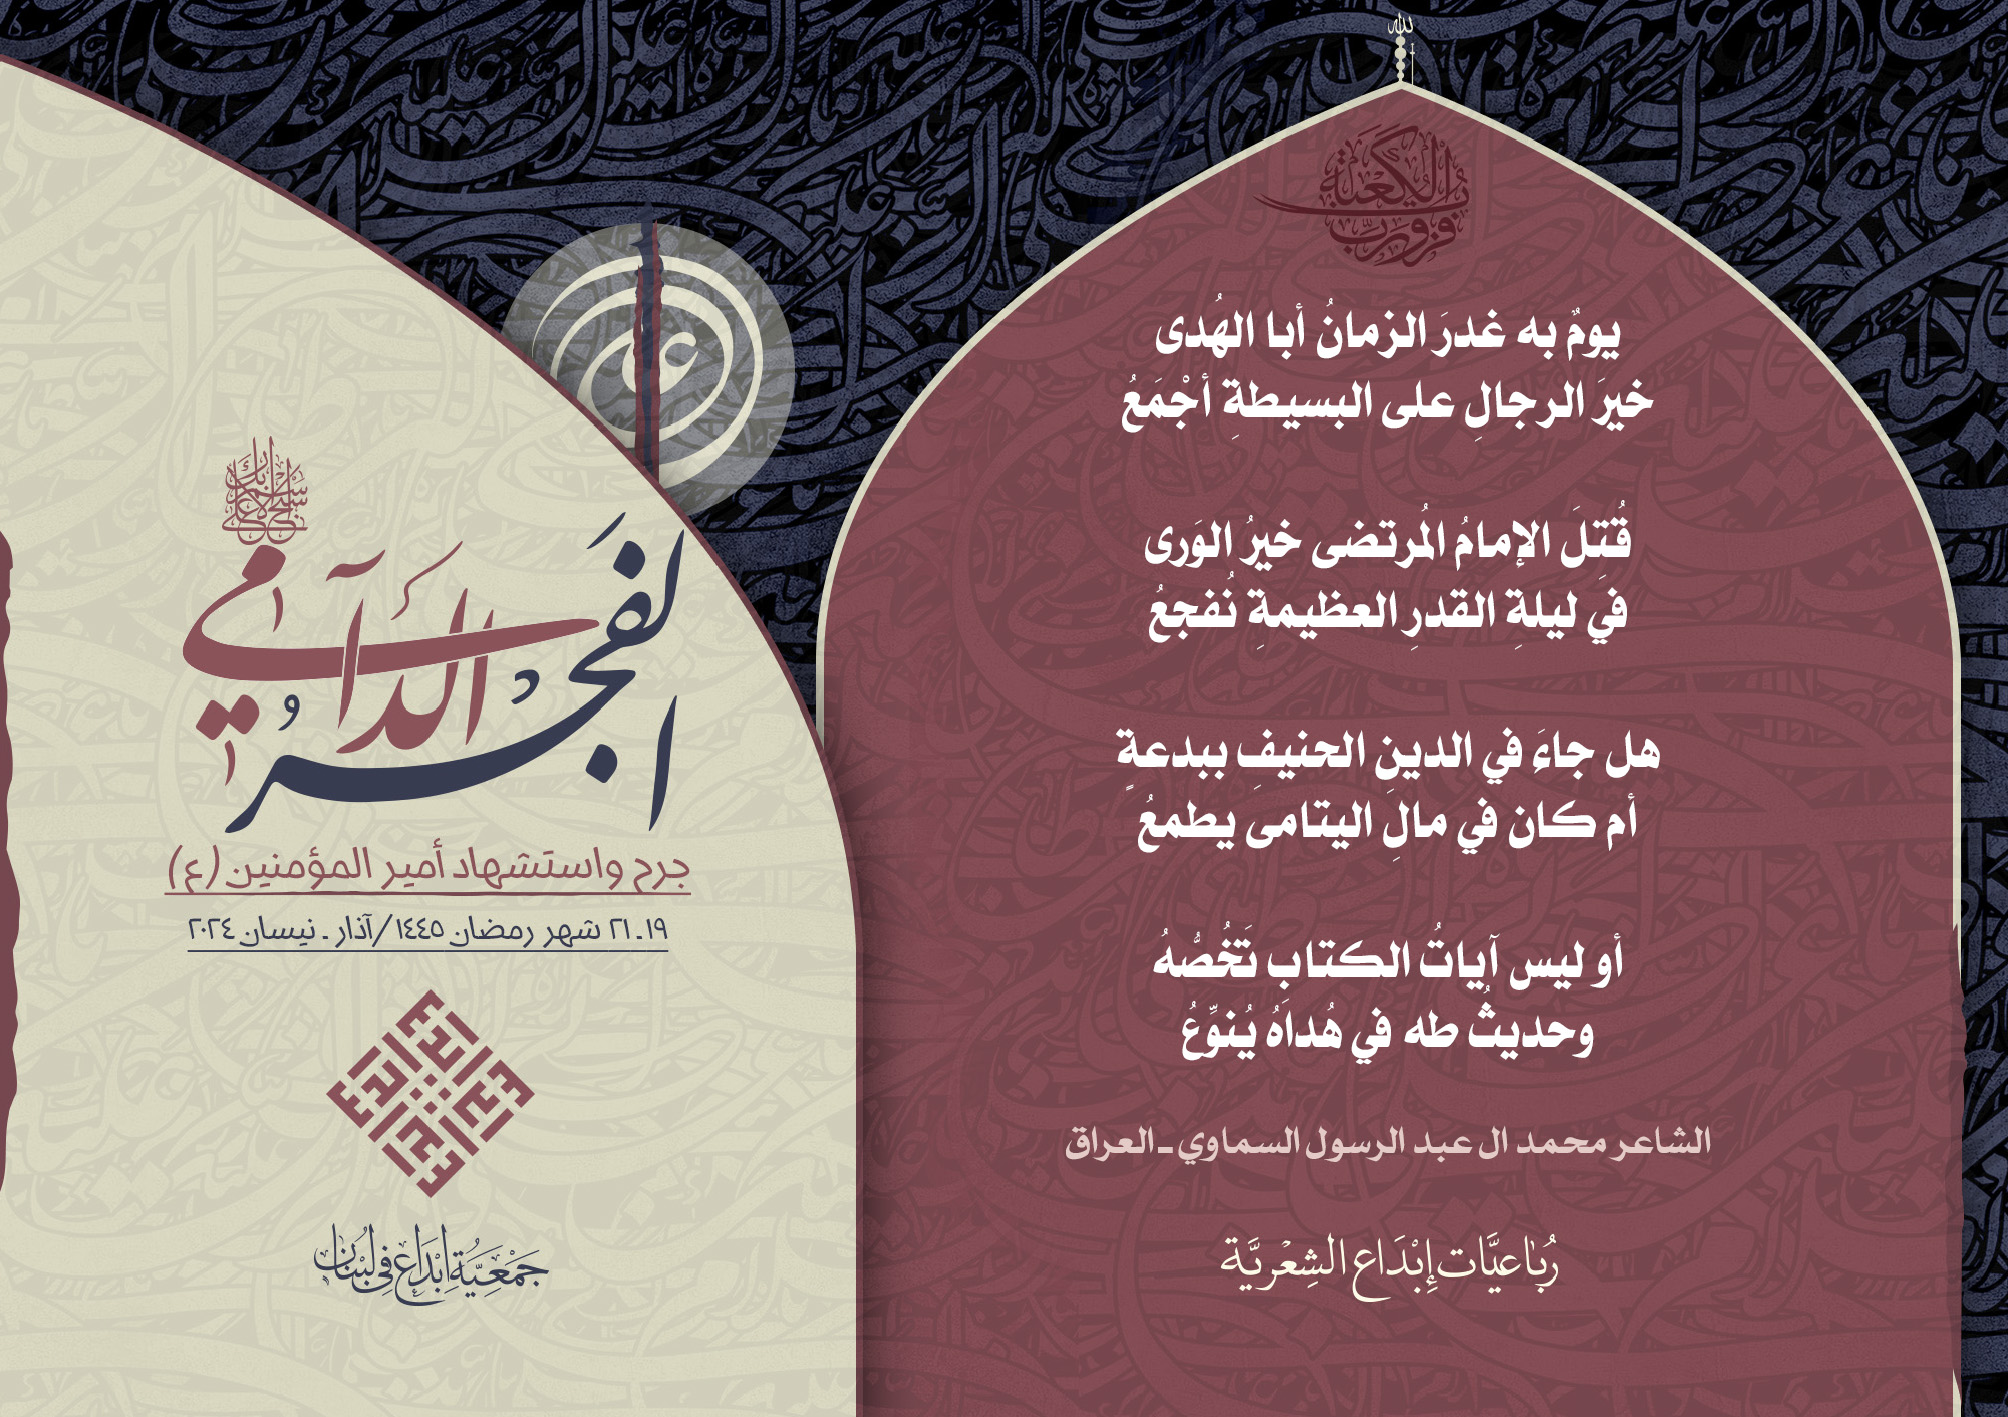 الله
فزت ورب الكعبة
يومٌ به غدرَ الزمانُ أبا الهُدى
خيرَ الرجالِ على البسيطةِ أجْمَعُ
قُتِلَ الإمامُ المُرتضى خيرُ الوَرى
في ليلةِ القدرِ العظيمةِ نُفجعُ
هل جاءَ في الدينِ الحنيفِ ببدعةٍ
أم كان في مالِ اليتامى يطمعُ
أو ليس آياتُ الكتابِ تَخُصُّهُ
وحديثُ طه في هُداهُ يُنوِّعُ
الشاعر محمد ال عبد الرسول السماوي - العراق
رُبَاعيَّات إِبْدَاع الشِعْريَّة
علي
سبح اسم ربك الأعلى
الفَجرُ الدَّامي
جرح واستشهاد أمير المؤمنين (ع)
١٩ - ٢١ شهر رمضان ١٤٤٥ / آذار - نيسان ٢٠٢٤
جَمْعِيَّةُ إِبْدَاع فِي لُبْنَان